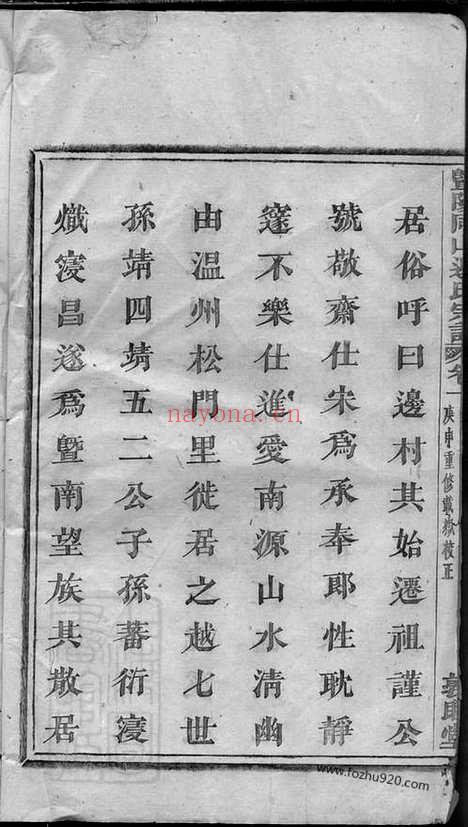 居俗呼曰邊村其始遷祖謹公
號敬齋仕宋爲承奉郎性耽靜
邃不樂仕進愛南源山水清幽
由温州松門里徙居之越七世
孫靖四靖五二公子孫蕃衍寖
熾寖昌遂爲暨南望族其散居
氏宗譜 卷一
庚申重修 校正
敦睦堂
nayona.cn
www.fozhu920.com